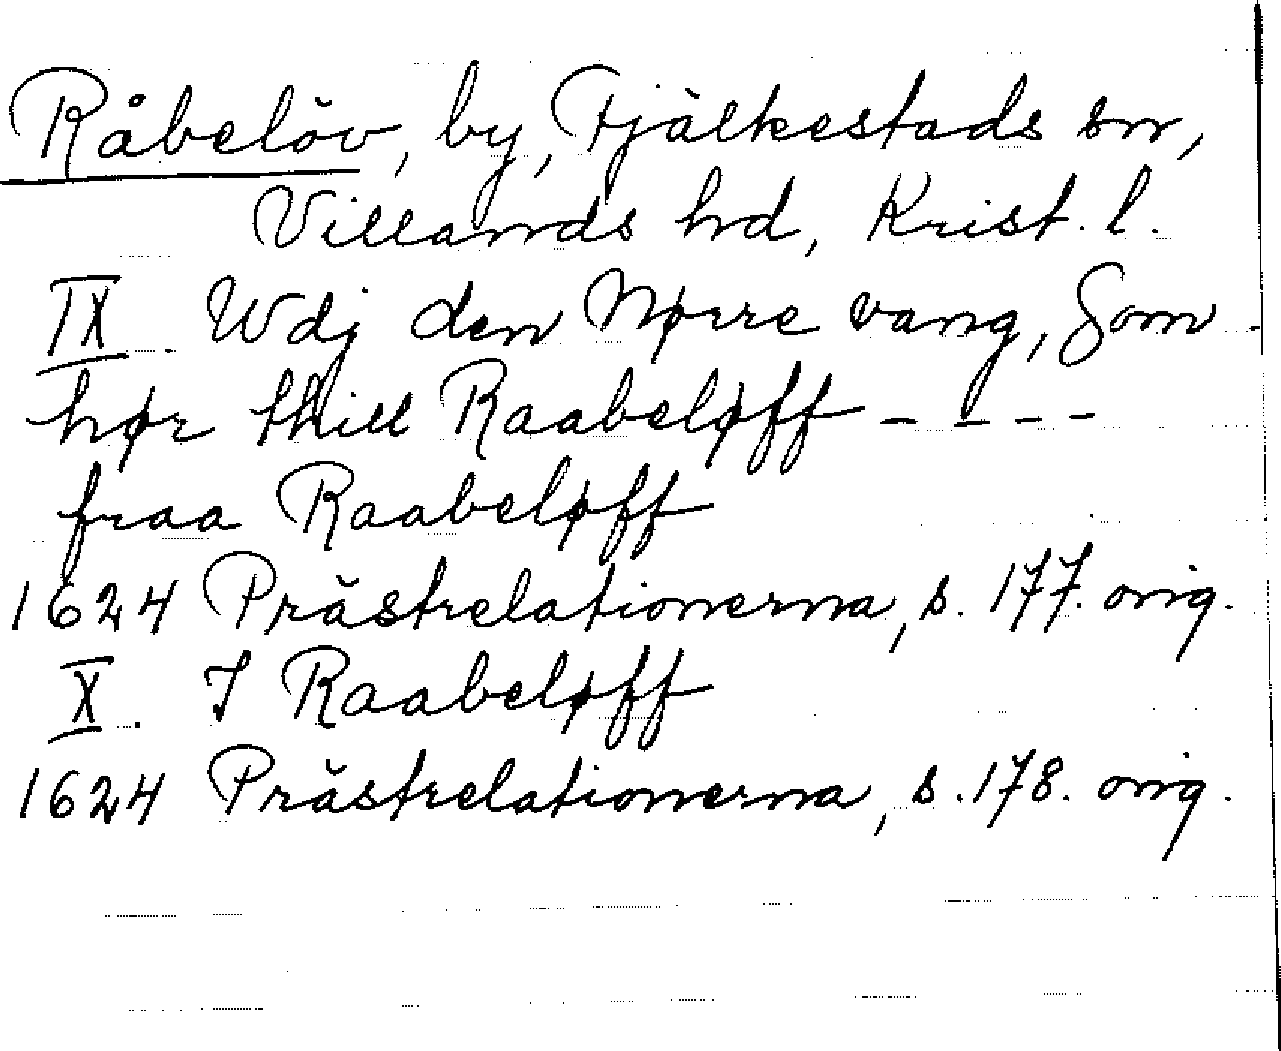 Råbelöv, by, Fjälkestads sn,
Villands hd, Krist. l.
IX. Wdj den Nørre vang, Som
hør thill Raabeløff - - - -
fraa Raabeløff
1624 Prästrelationerna, s. 177. orig.
X. I Raabeløff
1624 Prästrelationerna, s. 178. orig.